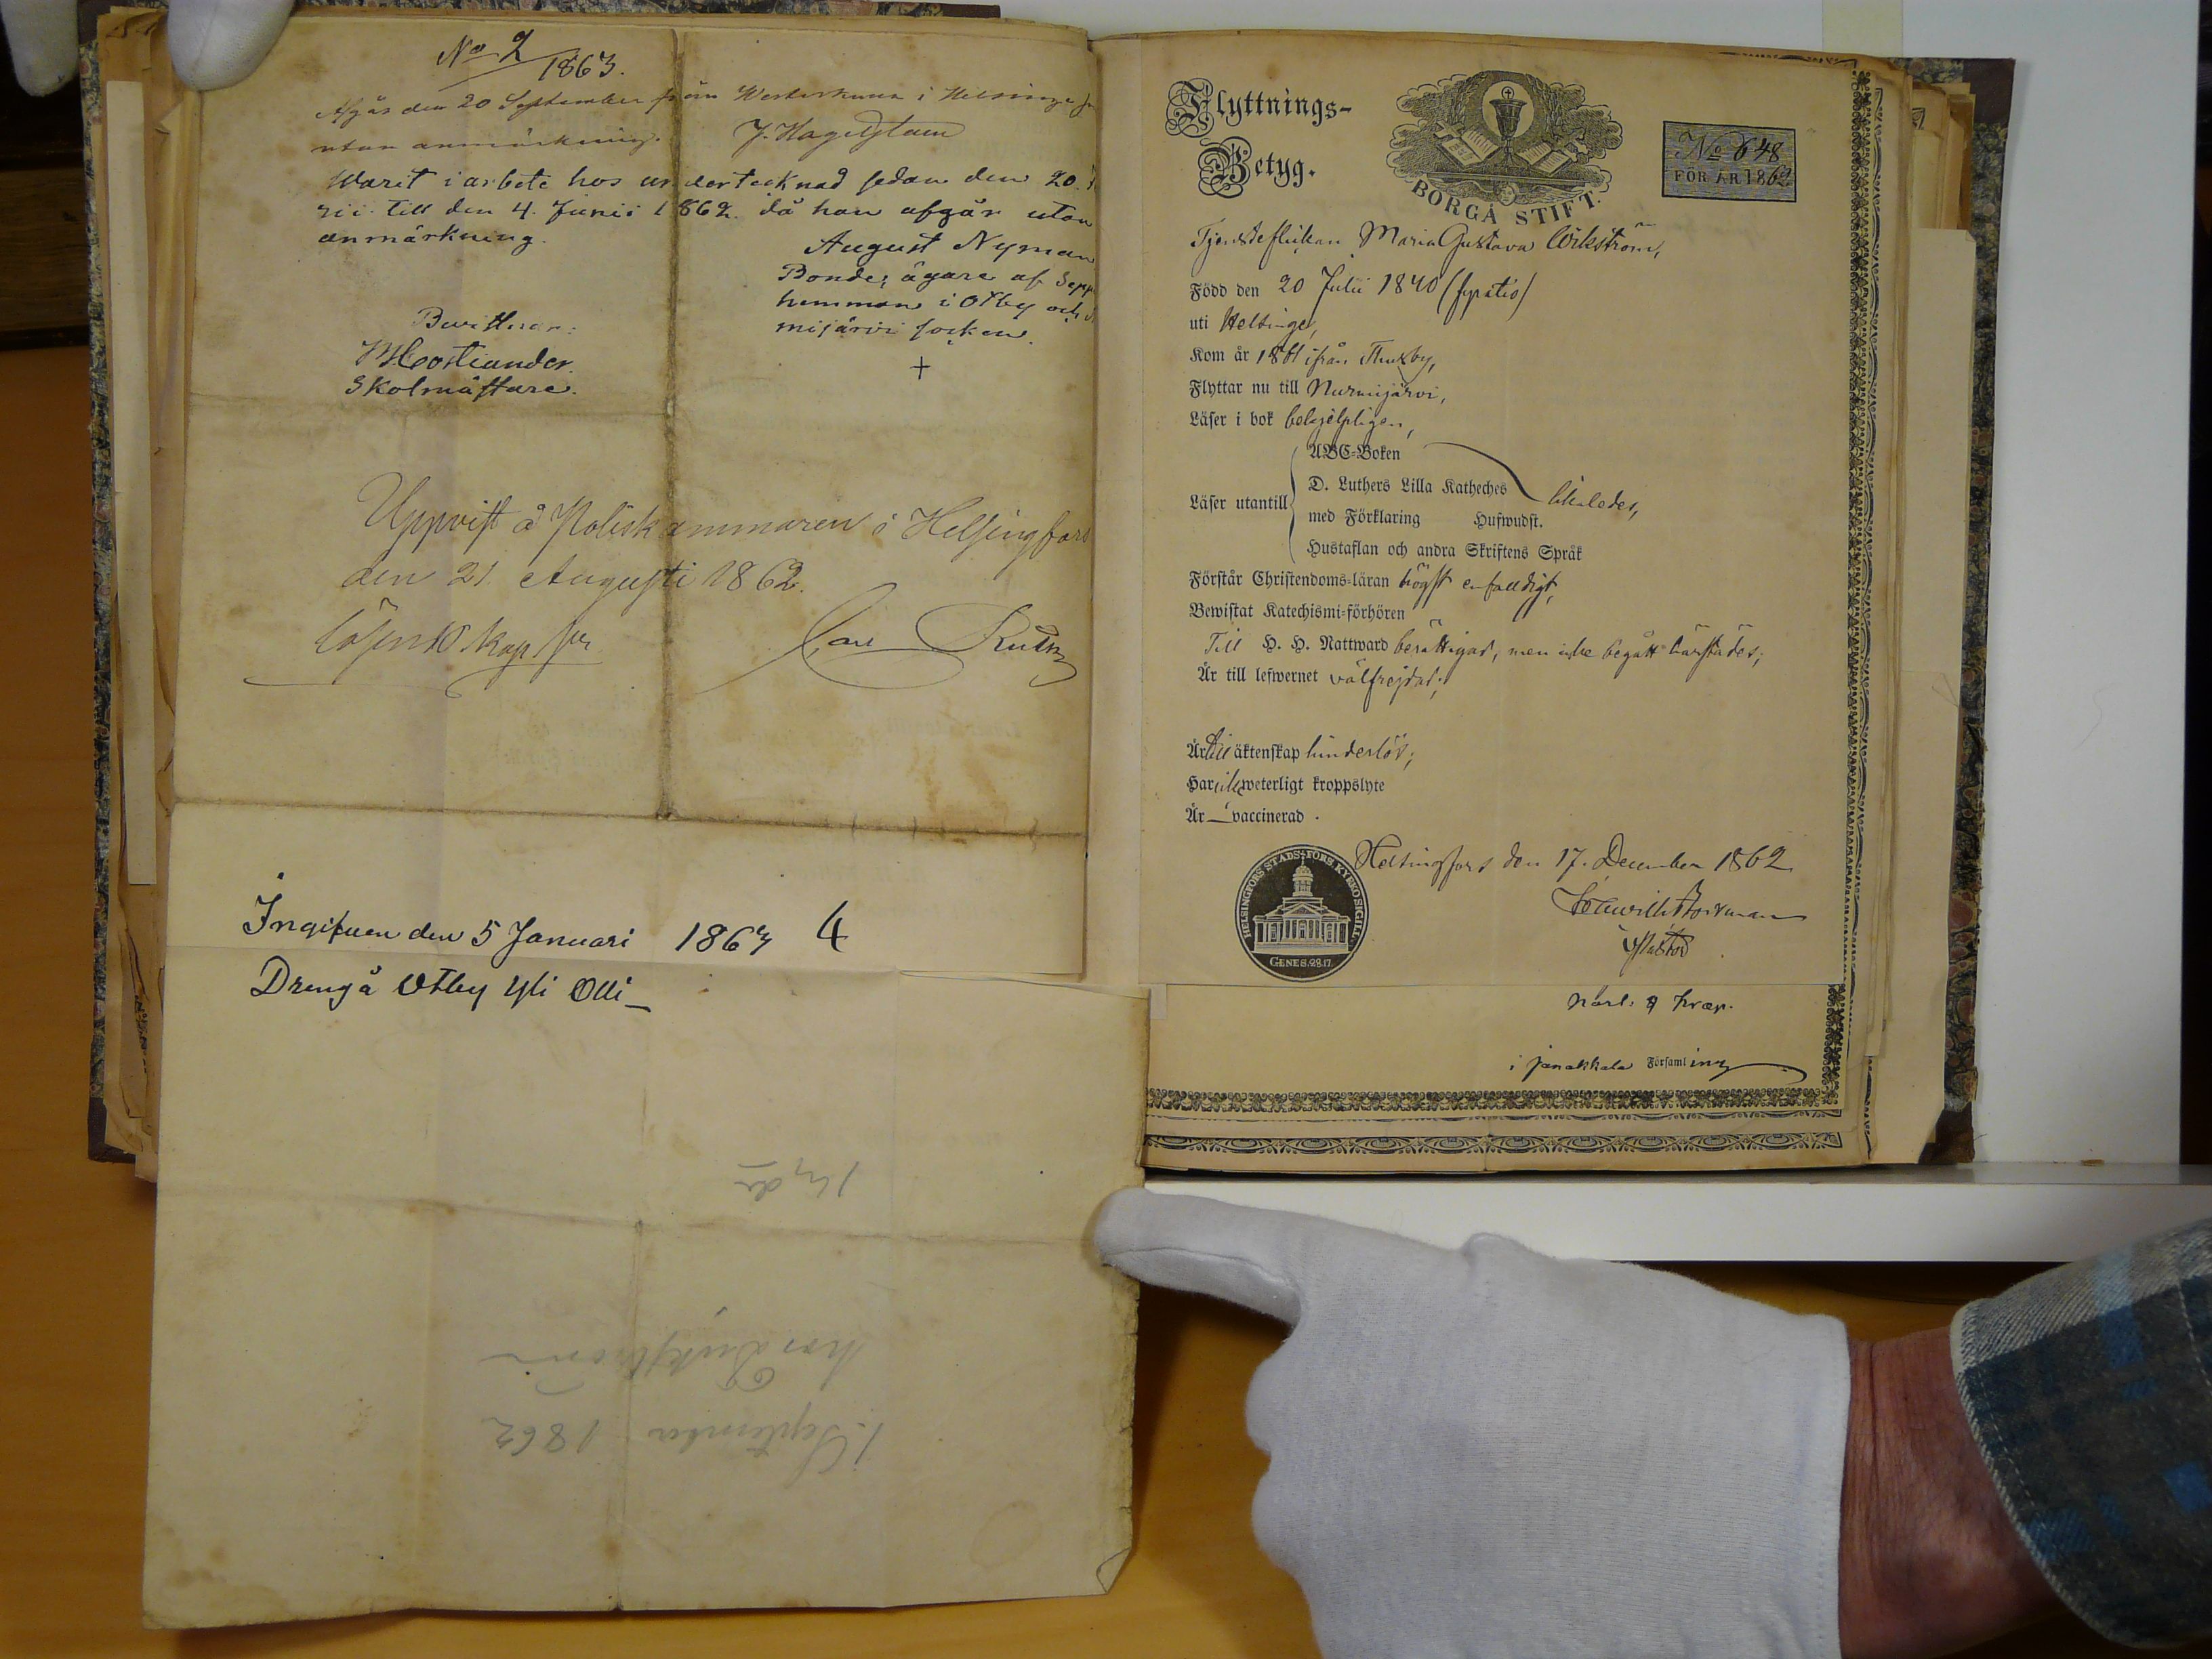 No 2
1863.
Afgår den 20 September från Westerkunn i Helsinge
utan anmärkning. J. Hagelstam
Warit i arbete hos undertecknad sedan den 20.
rii till den 4. Junii 1862. då han afgår utan
anmärkning.
August Nyman
Bonde, ägare af Sepp
hemman i Otby och
mijärvi socken.
+
Bevittnar:
Costiander.
Skolmästare.
Uppvist å Poliskammaren i Helsingfors
den 21 Augusti 1862.
Carl
Ingifven den 5 Januari 1863 4
Dreng å Otby Yli Olli
1 September 1862
Flyttnings-
Betyg.
BORGÅ STIFT.
No 648
FÖR ÅR 1862
Tjensteflickan Maria Gustava Wikström,
Född den 20 Julii 1840 (fyratio)
uti Helsinge,
Kom år 1861 ifrån Thusby,
Flyttar nu till Nurmijärvi,
Läser i bok behjelpligen,
ABC-Boken
D. Luthers Lilla Katheches
Läser utantill
likaledes,
med Förklaring Hufwudst.
Hustaflan och andra Skriftens Språk
Förstår Christendoms-läran högst enfaldigt,
Bewistat Katechismi-förhören
Till H. H. Nattward berättigad, men icke begått härstädes;
Är till lefwernet välfrejdad;
Är till äktenskap hinderlös;
Har icke weterligt kroppslyte
Är — vaccinerad .
Helsingfors den 17. December 1862
Pastor
HELSINGFORS STADS-FÖRS. KYRKOSIGILL.
GENES. 28.17.
i Janakkala Församling